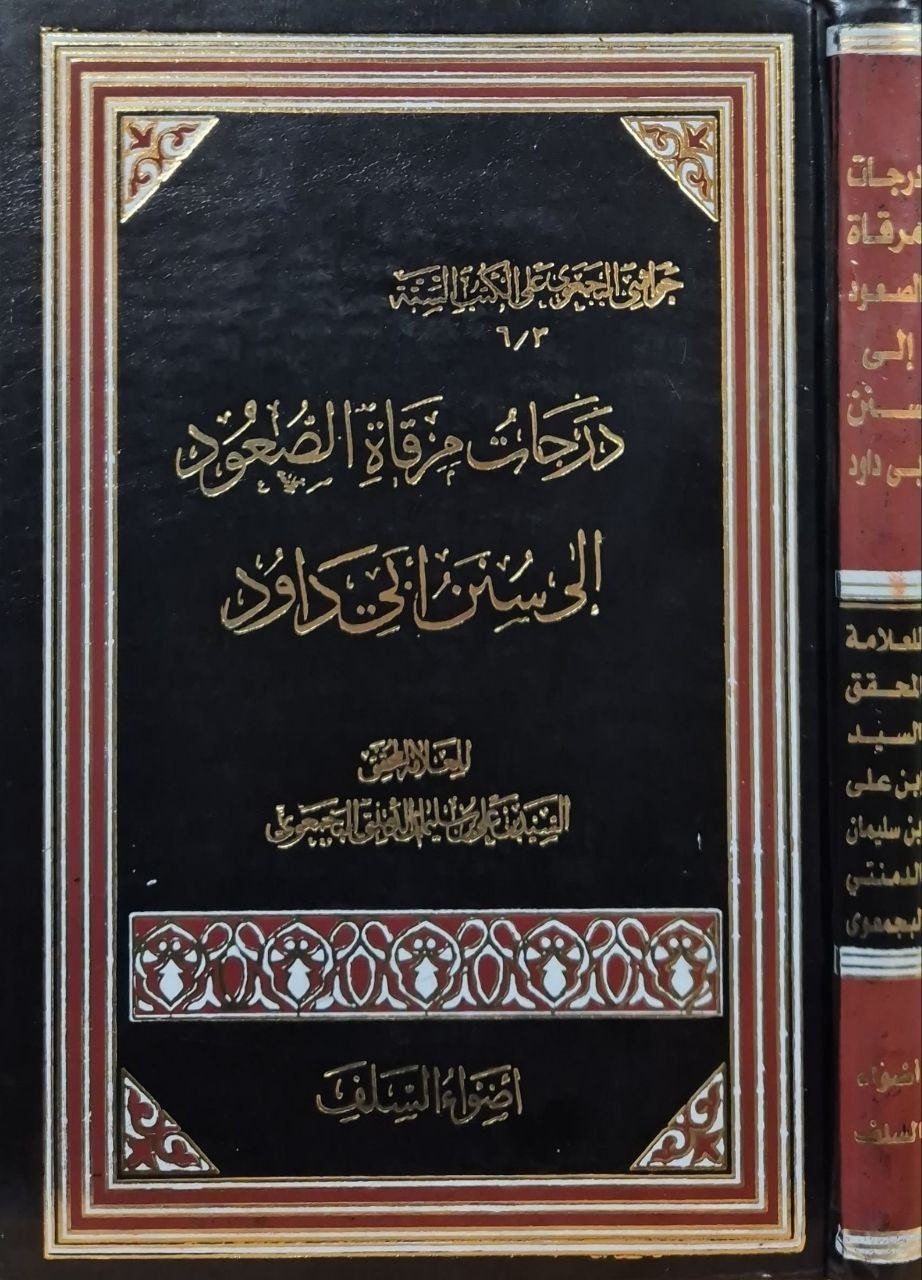 حَواشِي البُجُمْعَوِي عَلَى الكُتُبِ السِّتَّة
٦/٣
دَرَجَاتُ مِرْقَاةِ الصُّعُود
إِلَى سُنَنِ أَبِي دَاوُد
للعلامة المحقق
السيد بن علي بن سليمان الدمنتي البجمعوي
أضْوَاءُ السَّلَفِ
درجات
مرقاة
الصعود
إلى
سنن
بى داود
للعلامة
المحقق
السيد
ابن على
بن سليمان
الدمنتي
بجمعوى
أضواء
السلف